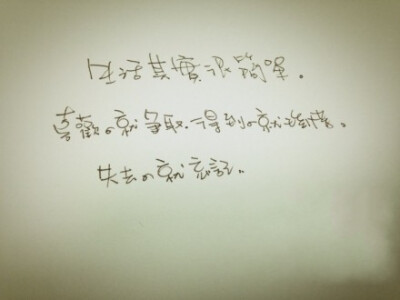 生活其實很簡單。
喜歡の就爭取.得到の就珍惜。
失去の就忘記。